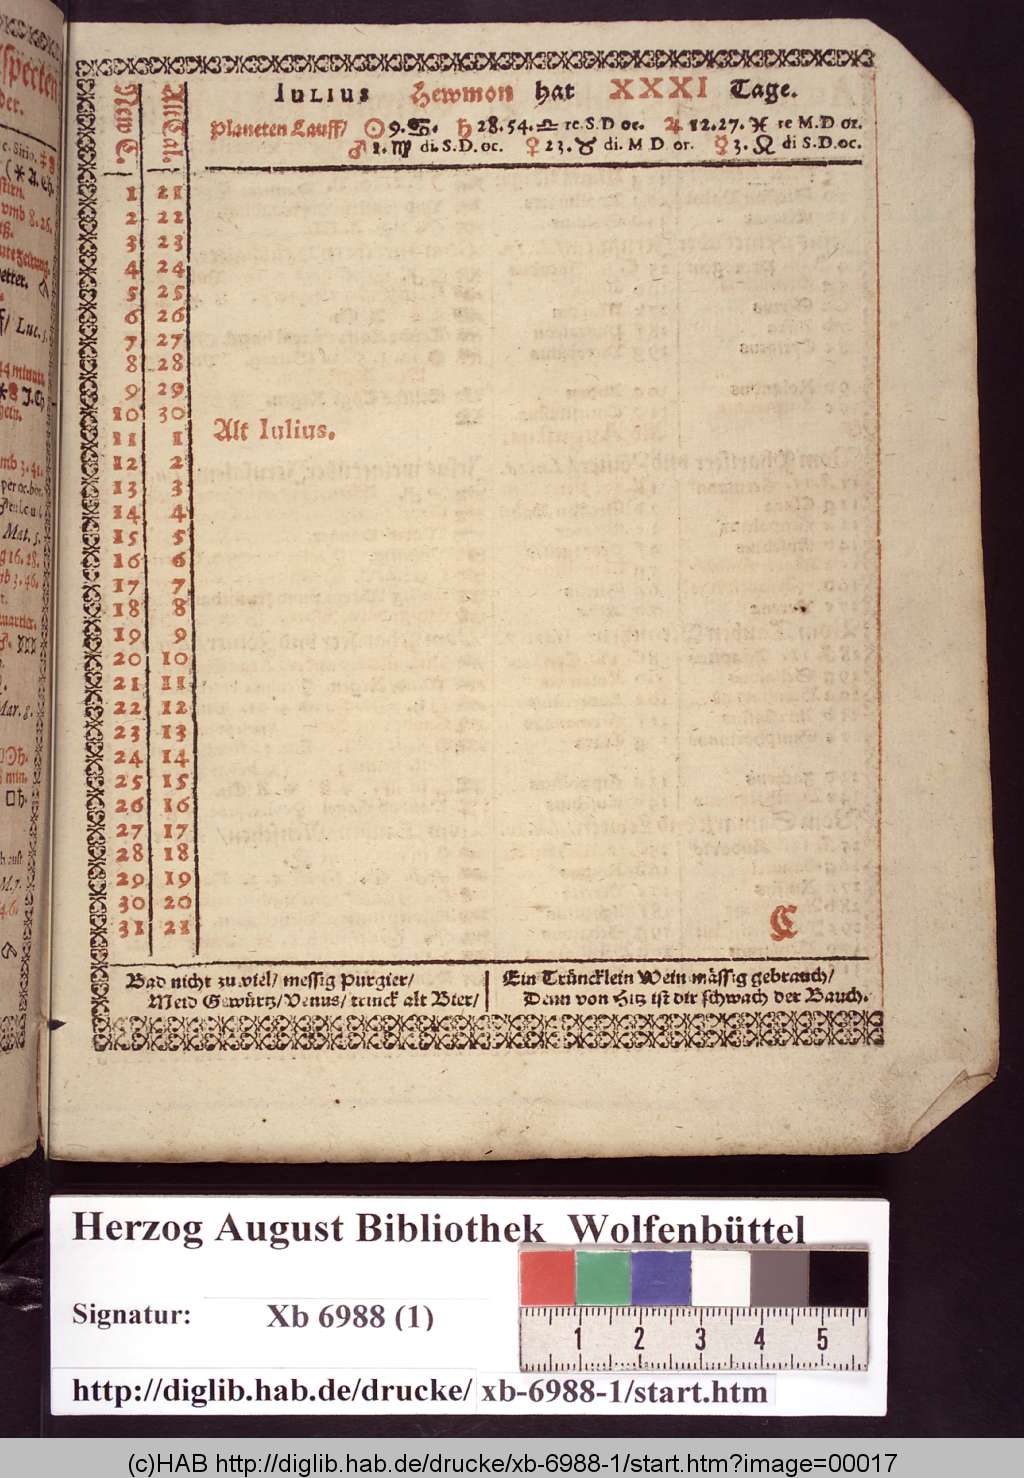 IULIUS Hewmon hat XXXI Tage.
Planeten Lauff/ ☉ 9.♋. ♄ 28.54.♎ re.S.D oc. ♃ 12.27.♓ re M.D or.
♂ 1.♍ di.S.D.oc. ♀ 23.♉ di.M D or. ☿ 3.♌ di S.D.oc.
New T. Alt Cal.
1 21
2 22
3 23
4 24
5 25
6 26
7 27
8 28
9 29
10 30
Alt Iulius.
11 1
12 2
13 3
14 4
15 5
16 6
17 7
18 8
19 9
20 10
21 11
22 12
23 13
24 14
25 15
26 16
27 17
28 18
29 19
30 20
31 21
C
Bad nicht zu viel/ messig Purgier/
Meid Gewürtz/Venus/ trinck alt Bier/
Ein Trüncklein Wein mässig gebrauch/
Denn von Hitz ist dir schwach der Bauch.
Herzog August Bibliothek Wolfenbüttel
Signatur: Xb 6988 (1)
1 2 3 4 5
http://diglib.hab.de/drucke/ xb-6988-1/start.htm
(c)HAB http://diglib.hab.de/drucke/xb-6988-1/start.htm?image=00017